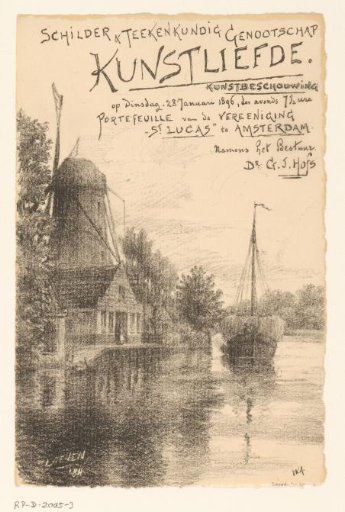 SCHILDER & TEEKENKUNDIG GENOOTSCHAP
KUNSTLIEFDE.
KUNSTBESCHOUWING
op Dinsdag 28 Januari 1896, des avonds 7½ ure
PORTEFEUILLE van de VEREENIGING
"St LUCAS" te AMSTERDAM.
Namens het Bestuur
Dr. G. J. Hofs
RP-D-2005-3